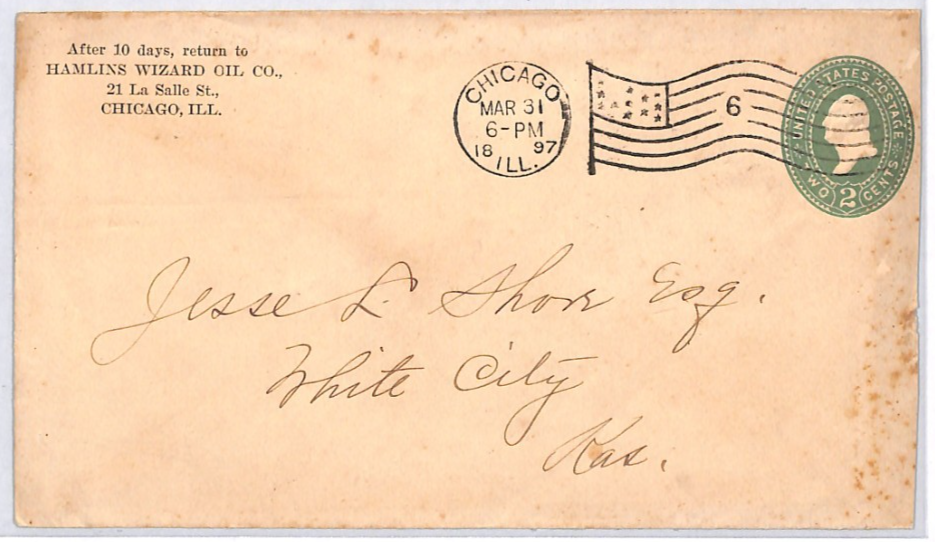 After 10 days, return to
HAMLINS WIZARD OIL CO.,
21 La Salle St.,
CHICAGO, ILL.
CHICAGO
MAR 31
6-PM
18 97
ILL.
6
UNITED STATES POSTAGE
TWO 2 CENTS
Jesse L. Shore Esq.
White City
Kas.